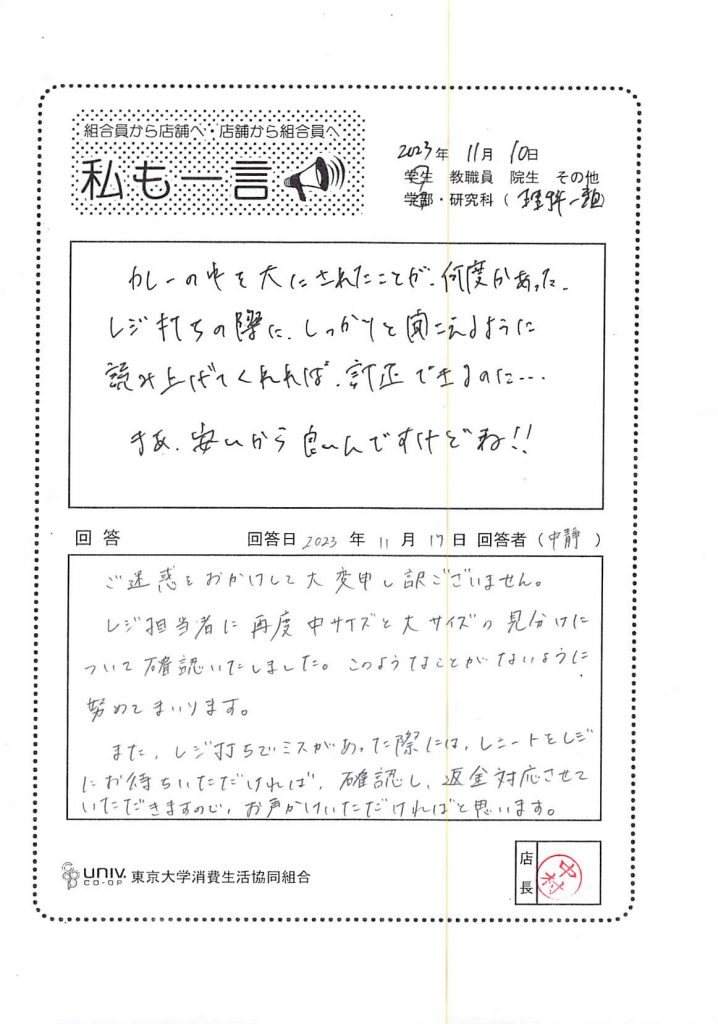 組合員から店舗へ・店舗から組合員へ
私も一言
2023年 11月 10日
学生 教職員 院生 その他
学部・研究科（理科一類）
カレーの中を大にされたことが、何度かあった。
レジ打ちの際に、しっかりと聞こえるように
読み上げてくれれば、訂正できるのに…
まあ、安いから良いんですけどね!!
回答 回答日 2023 年 11 月 17 日 回答者（中静）
ご迷惑をおかけして大変申し訳ございません。
レジ担当者に再度中サイズと大サイズの見分けに
ついて確認いたしました。このようなことがないように
努めてまいります。
また、レジ打ちでミスがあった際には、レシートをレジ
にお待ちいただければ、確認し、返金対応させて
いただきますので、お声かけいただければと思います。
UNIV. CO-OP 東京大学消費生活協同組合
店長 中村